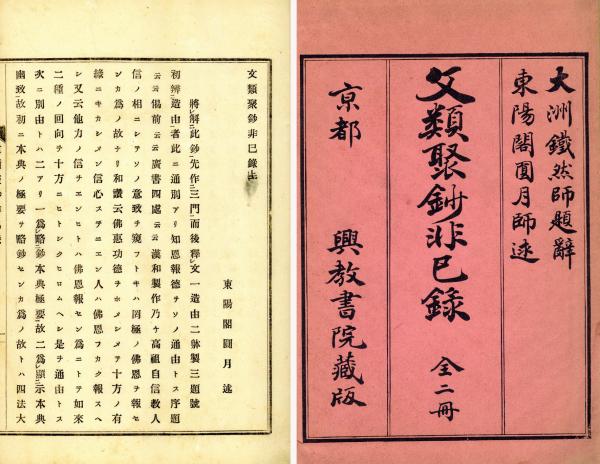 大洲鐵然師題辭
東陽閣圓月師述
文類聚鈔非已錄 全二冊
京都 興教書院藏版
文類聚鈔非已錄上
東陽閣圓月 述
將解此鈔先作三門而後釋文一造由二躰製三題號
初辨造由者此ニ通別アリ知恩報德ヲソノ通由トス序題
云云偈前云云廣書四處云云漢和製作乃ケ高祖自信教人
信ノ相ニシテソノ意致ヲ窺フトキハ罔極ノ佛恩ヲ報セ
ンカ爲ノ故ナリ和讚云佛惠功德ヲホメシメテ十方ノ有
緣ニキカシメン信心ステニエン人ハ佛恩フカク報スヘ
シ又云他力ノ信ヲエンヒトハ佛恩報センタメニトテ如來
二種ノ回向ヲ十方ニヒトシクヒロムヘシ是ヲ通由トス
次ニ別由トハ二アリ一爲略鈔本典極要故二爲顯示本典
幽致故初ニ本典ノ極要ヲ略鈔センカ爲ノ故トハ四法大